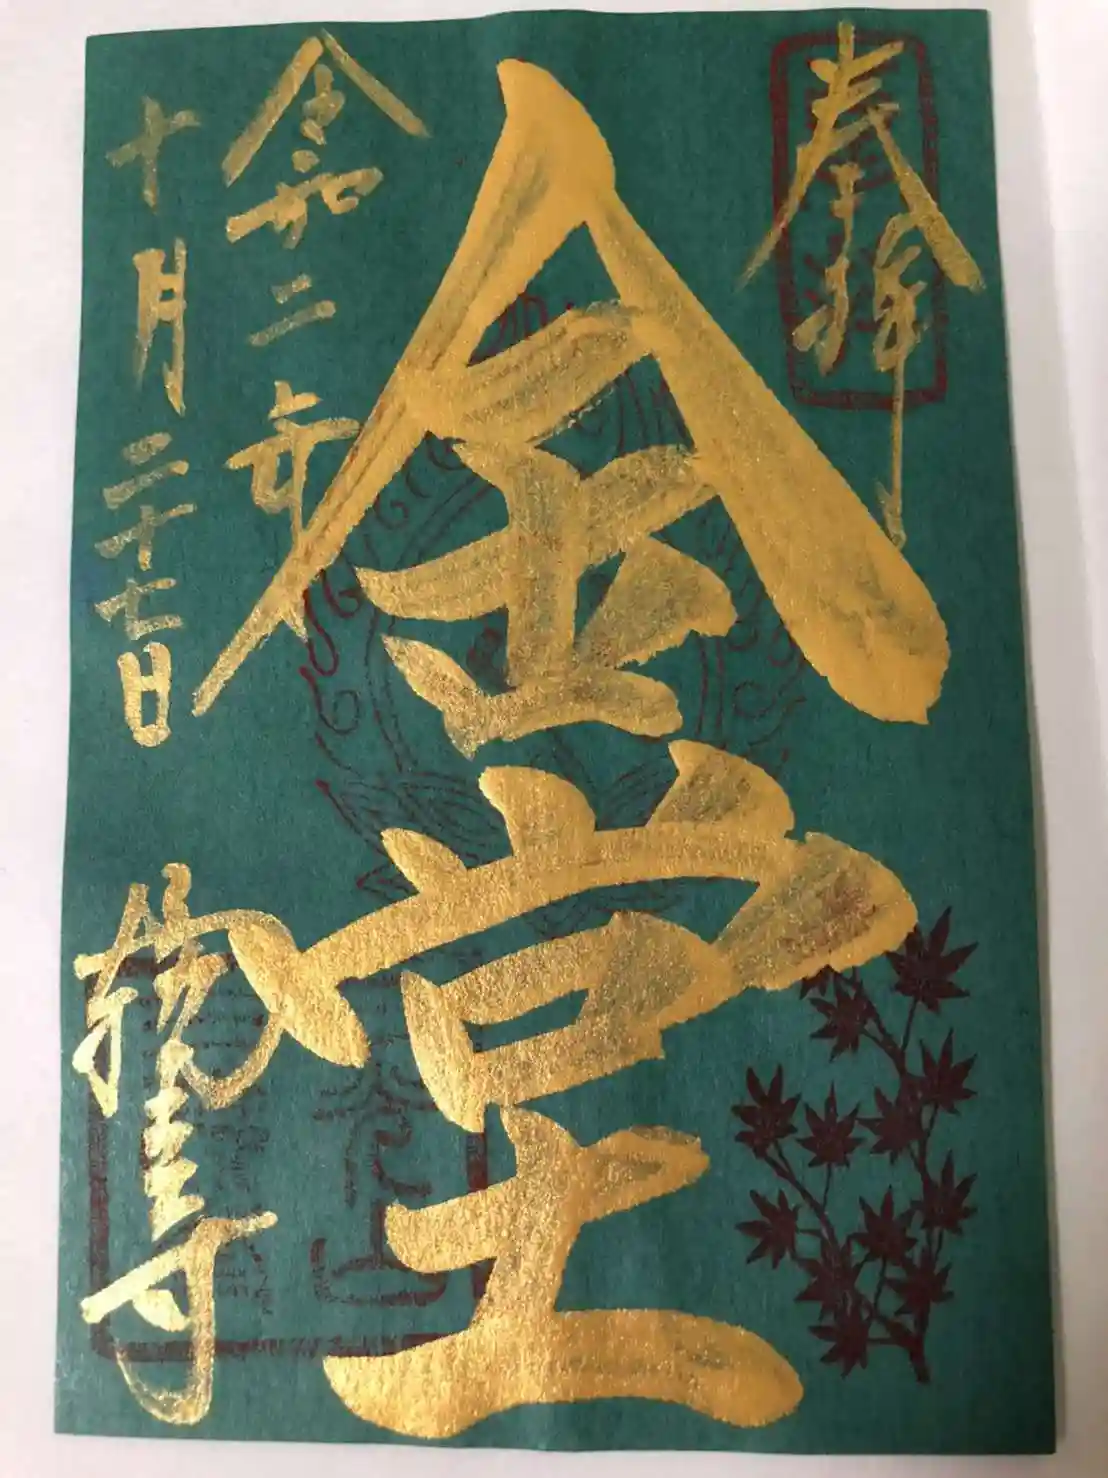 奉拝
金堂
令和二年
十月二十七日